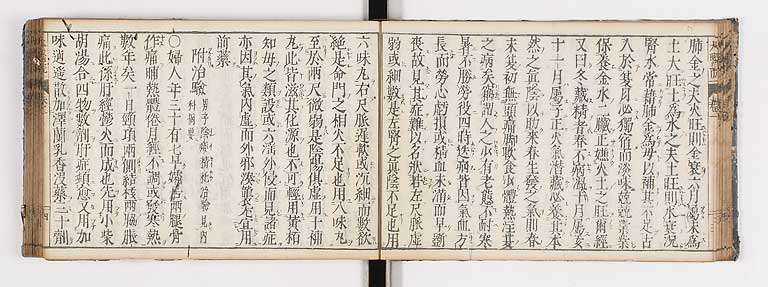 肺金之夫火旺則金衰六月屬未爲
土大旺土爲水之夫土旺則水衰況
腎水常藉肺金爲母以補其不足古
人於夏月必獨宿而淡味兢兢業業
保養金水二臟正嫌火土之旺爾經
又曰冬藏精者春不病溫十月屬亥
十一月屬子正火氣潛藏必養其本
然之真陰以助來春生發之氣則春
末夏初無頭痛脚軟食少體熱注夏
之病矣竊謂人之少有老態不耐寒
暑不勝勞役四時迭病皆因氣血方
長而勞心虧損或精血未滿而早斵
喪故見其症難以名狀若左尺脈虛
弱或細數是左腎之真陰不足也用
六味丸右尺脈遲軟或沉細而數欲
絕是命門之相火不足也用八味丸
至於兩尺微弱是陰陽俱虛用十補
丸此皆滋其化源也不可輕用黃栢
知母之類設或六淫外侵而見諸症
亦因其氣內虛而外邪湊襲尤宜用
前藥
附治驗
男子陰痿精耗治驗見內
科摘要
〇婦人年三十有七早孀居兩腿骨
作痛晡熱體倦月經不調或發寒熱
數年矣一月頸項兩側結核兩脇脹
痛此係肝經鬱火而成也先用小柴
胡湯合四物數劑肝症頓愈又用加
味逍遙散加澤蘭乳香沒藥三十劑